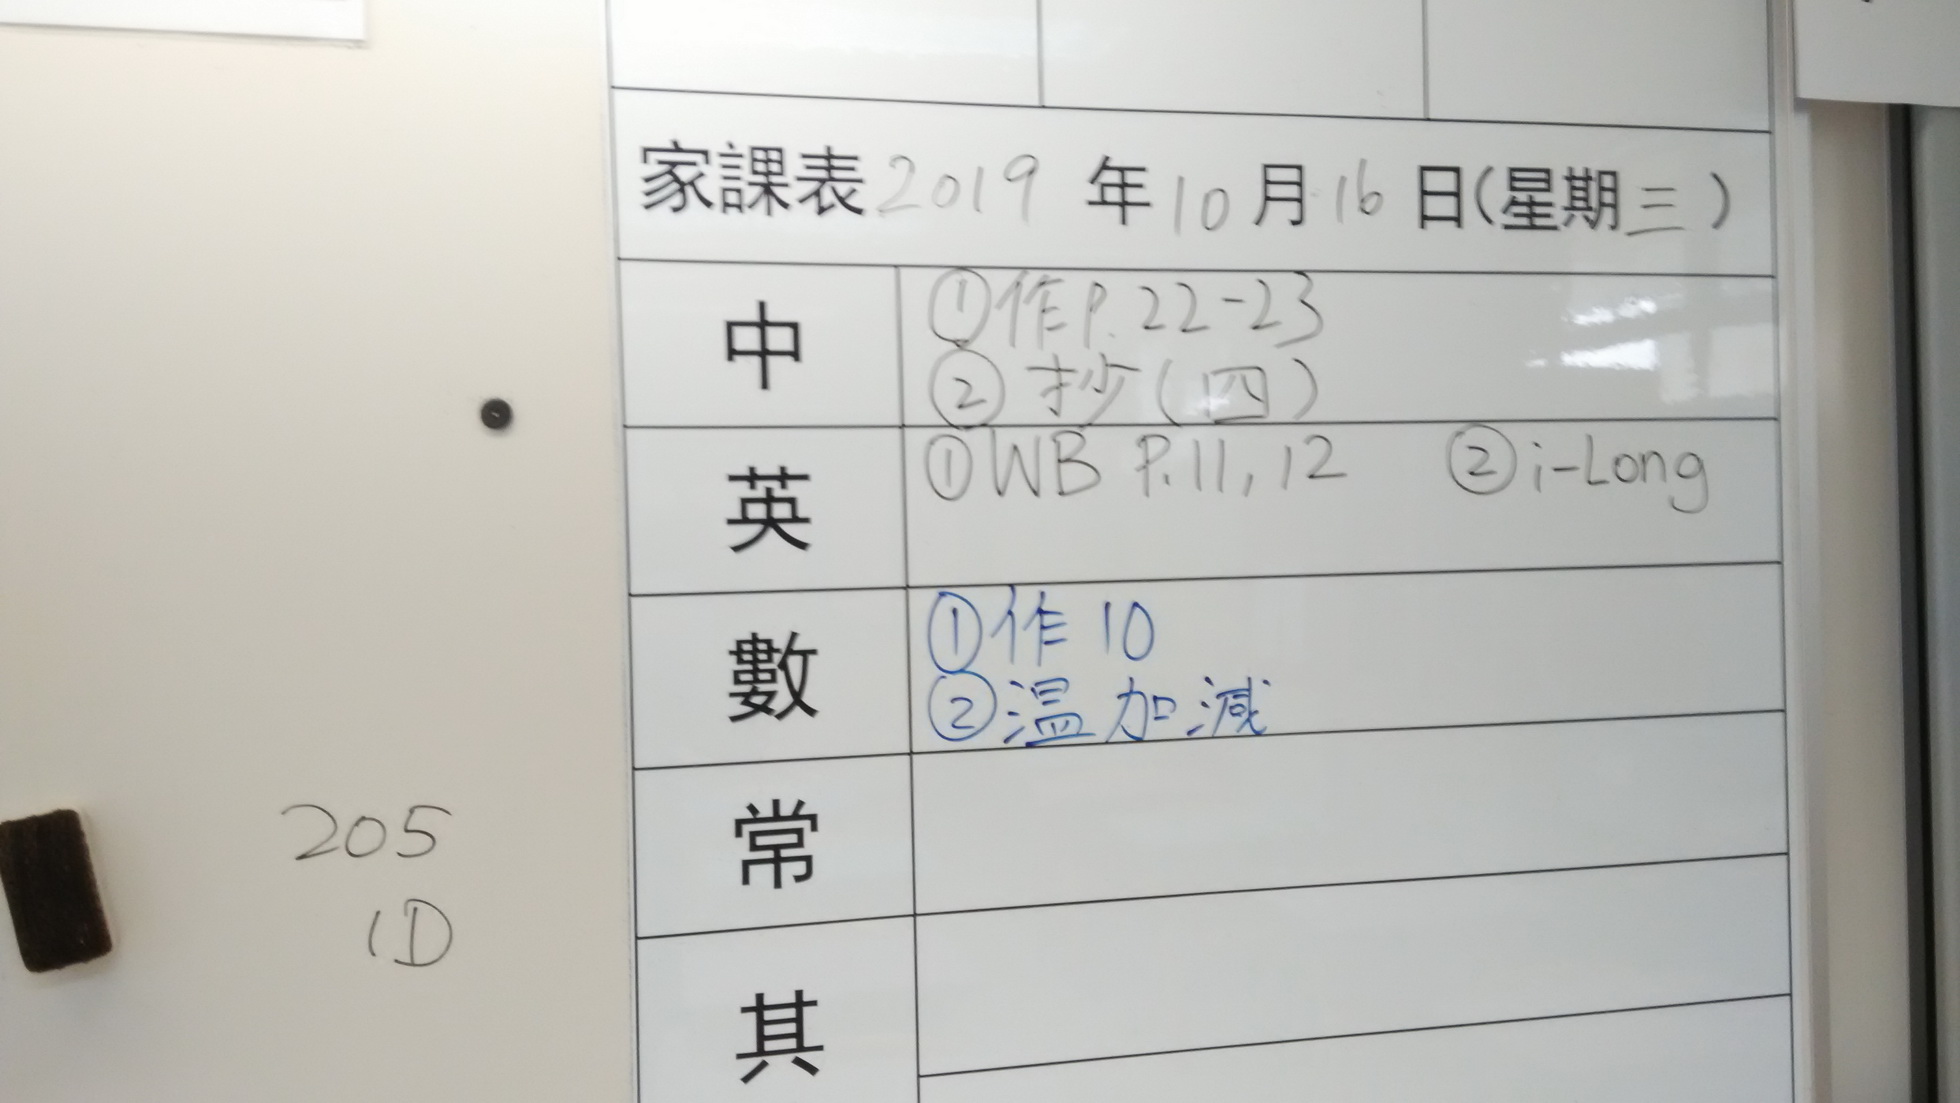 家課表 2019 年 10 月 16 日(星期三)
中
①作P.22-23
②抄(四)
英
①WB P.11,12 ②i-Long
數
①作10
②温加減
常
其
205
1D